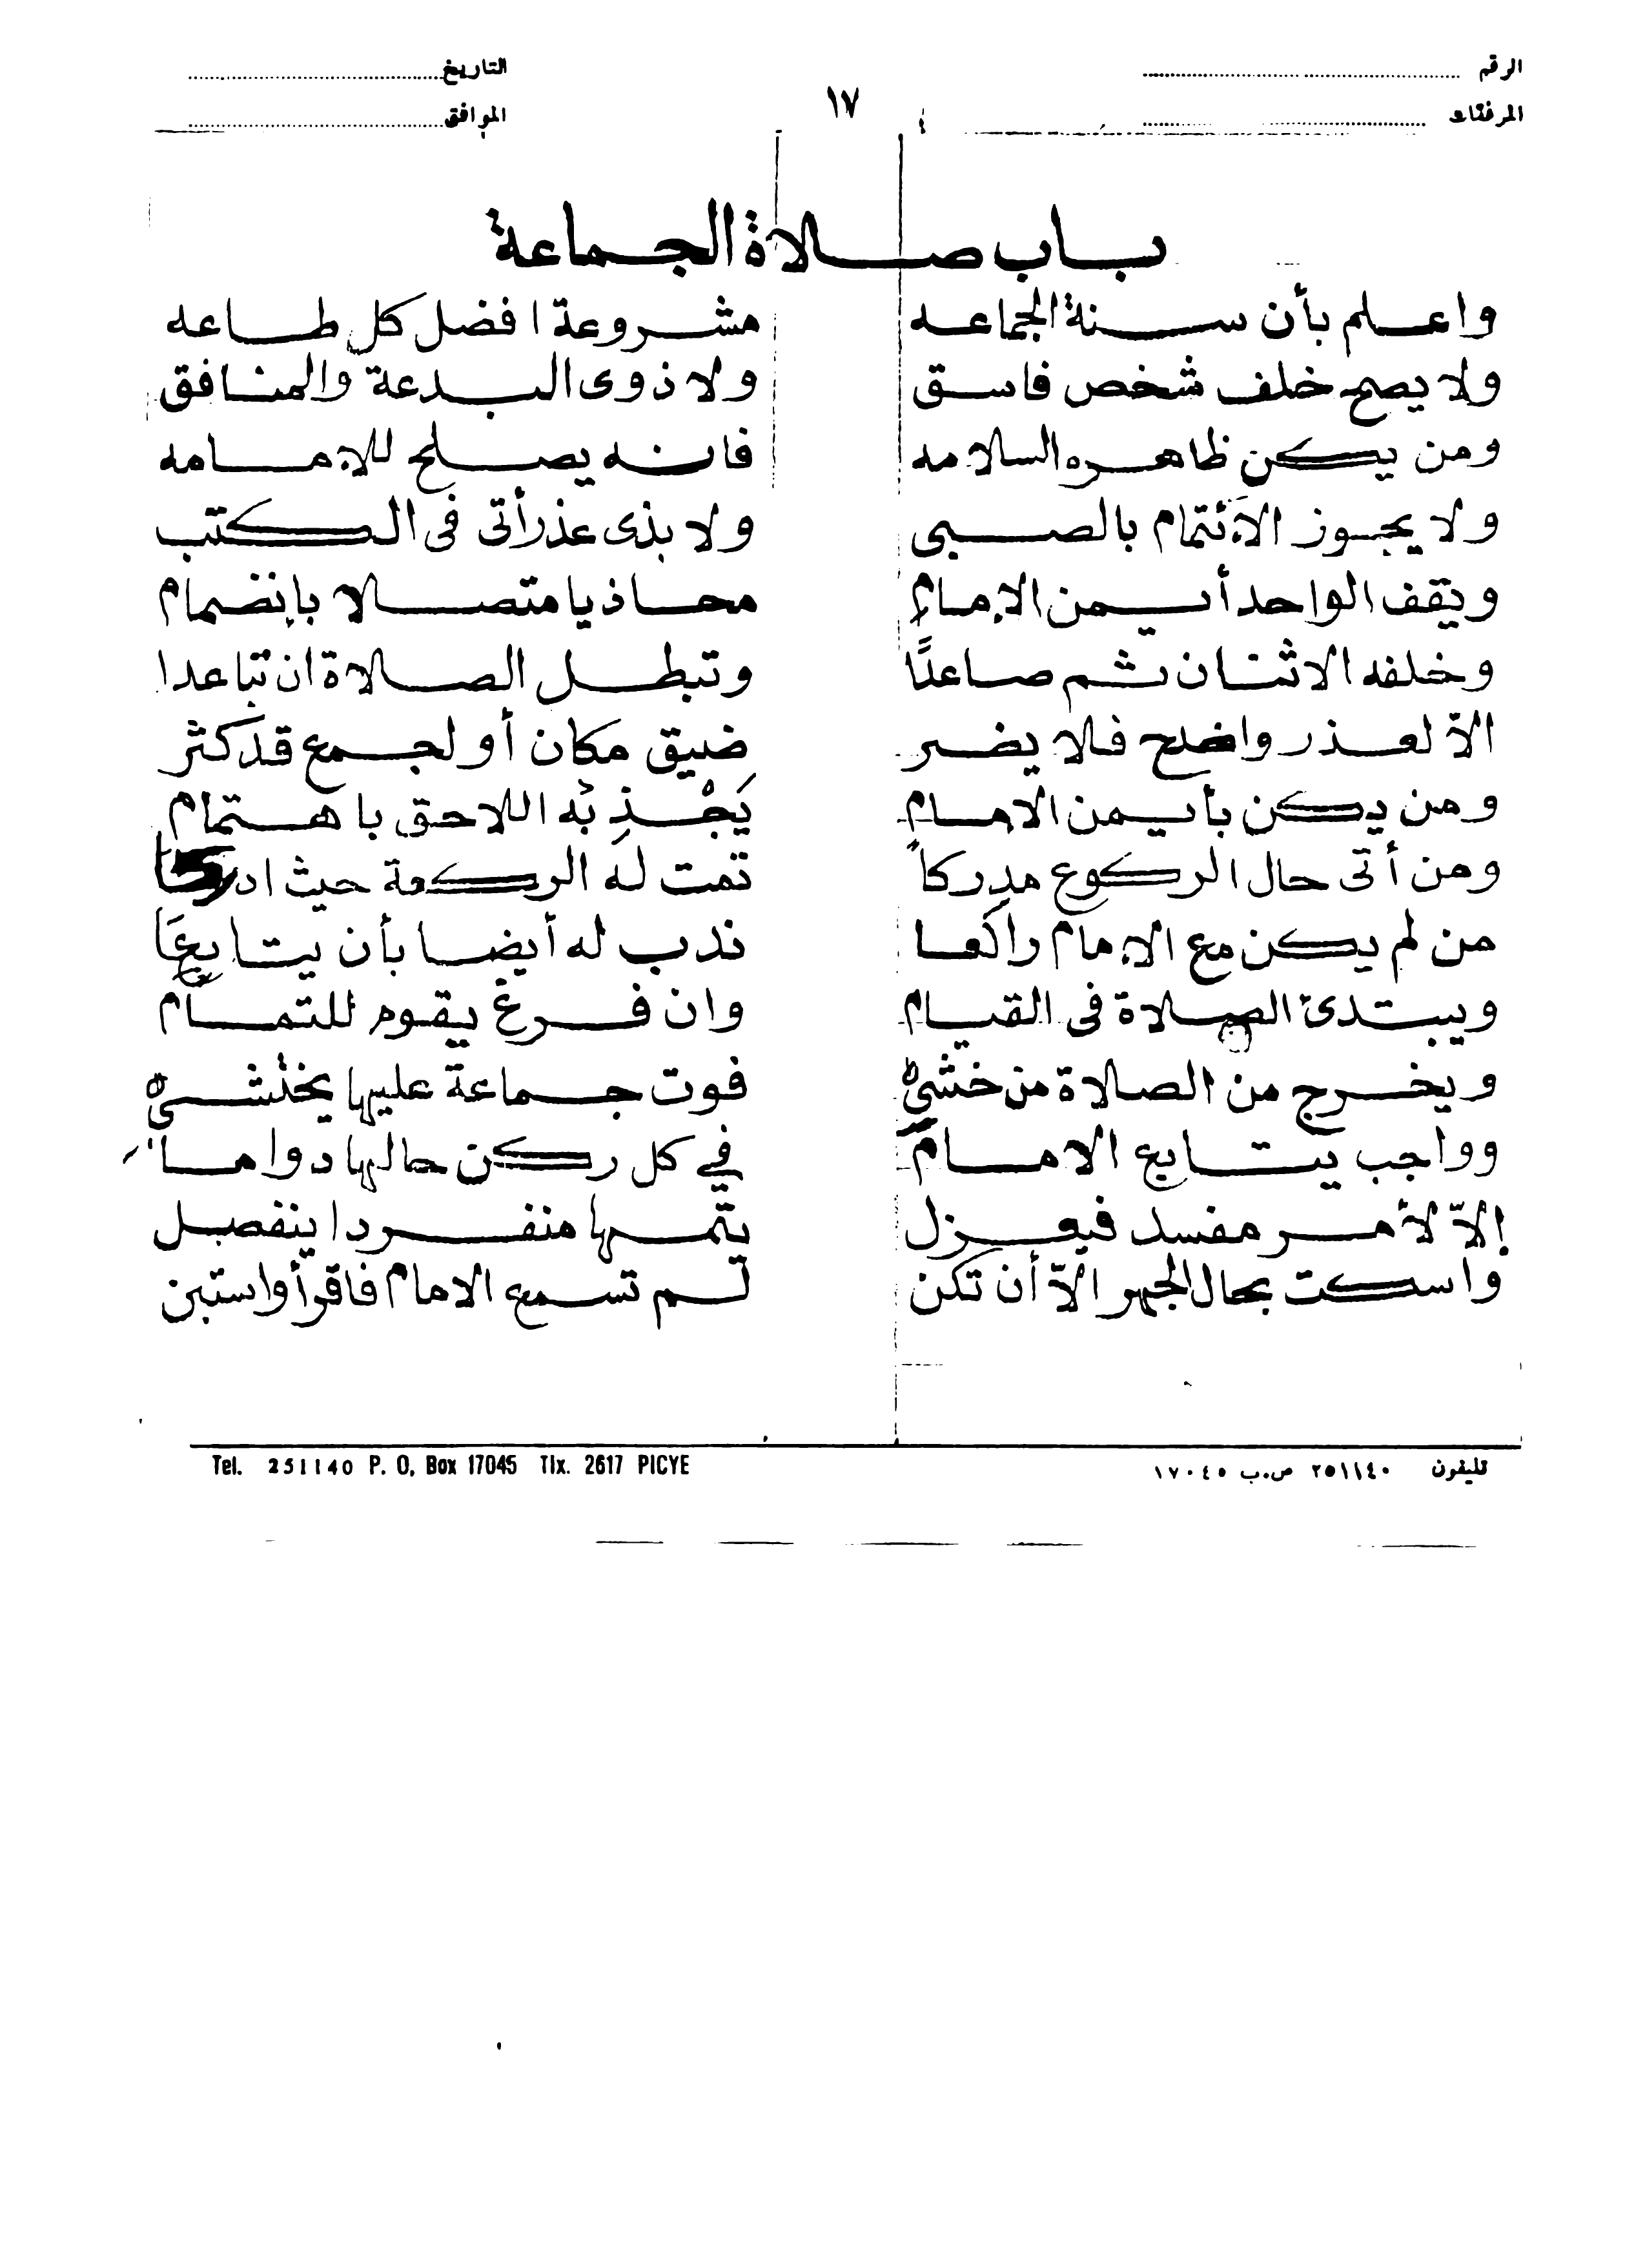 الرقم التاريخ
١٧
المرفقات الموافق
باب صلاة الجماعة
واعلم بأن سنة الجماعه مشروعة افضل كل طاعه
ولا يصح خلف شخص فاسق ولا ذوى البدعة والمنافق
ومن يكن ظاهره السلامه فانه يصلح للامامه
ولا يجوز الائتمام بالصبى ولا بذى عذر أتى فى الكتب
ويقف الواحد أيمن الامام محاذيا متصلا بانضمام
وخلفه الاثنان ثم صاعدًا وتبطل الصلاة ان تباعدا
الاّ لعذر واضح فلا يضر ضيق مكان أو لجمع قد كثر
ومن يكن بأيمن الامام يَجْذِبُه اللاحق باهتمام
ومن أتى حال الركوع مدركاً تمت له الركعة حيث ادركا
من لم يكن مع الامام راكعا ندب له أيضا بأن يتابعَا
ويبتدئ الصلاة فى القيام وان فرغ يقوم للتمام
ويخرج من الصلاة من خشي فوت جماعة عليها يختشي
وواجب يتابع الامام في كل ركن حالها دواما
إلاّ لأمر مفسد فيعزل يتمها منفردا ينفصل
واسكت بحال الجهر الاّ أن تكن لم تسمع الامام فاقرأ واستبن
Tel. 251140 P. O, Box 17045 Tlx. 2617 PICYE تليفون ٢٥١١٤٠ ص.ب ١٧٠٤٥